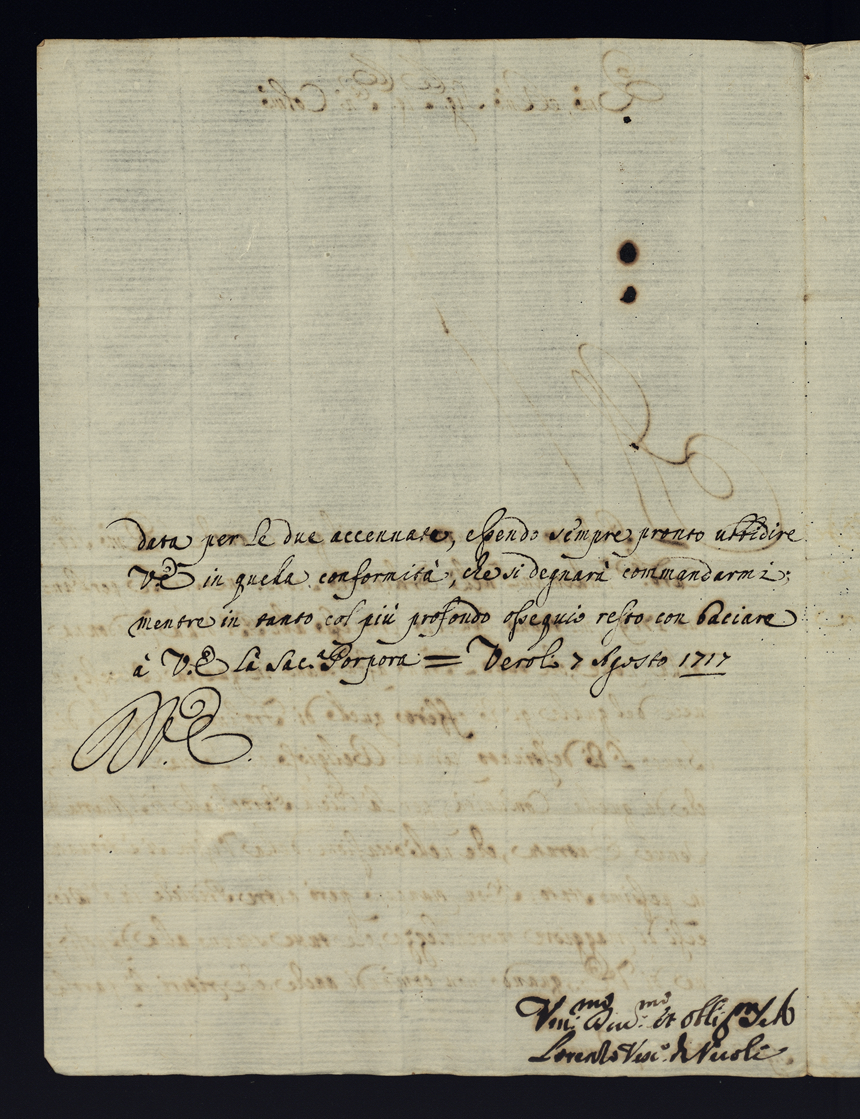 data per le due accennate, essendo sempre pronto ubbidire
V.E. in quella conformità, che si degnarà commandarmi;
mentre in tanto col più profondo ossequio resto con baciare
à V.E. la Sac.ª Porpora = Veroli 7 Agosto 1717
V.E.
Um.mo Div.mo et obblig.mo
Lorenzo Vesc.o di Veroli